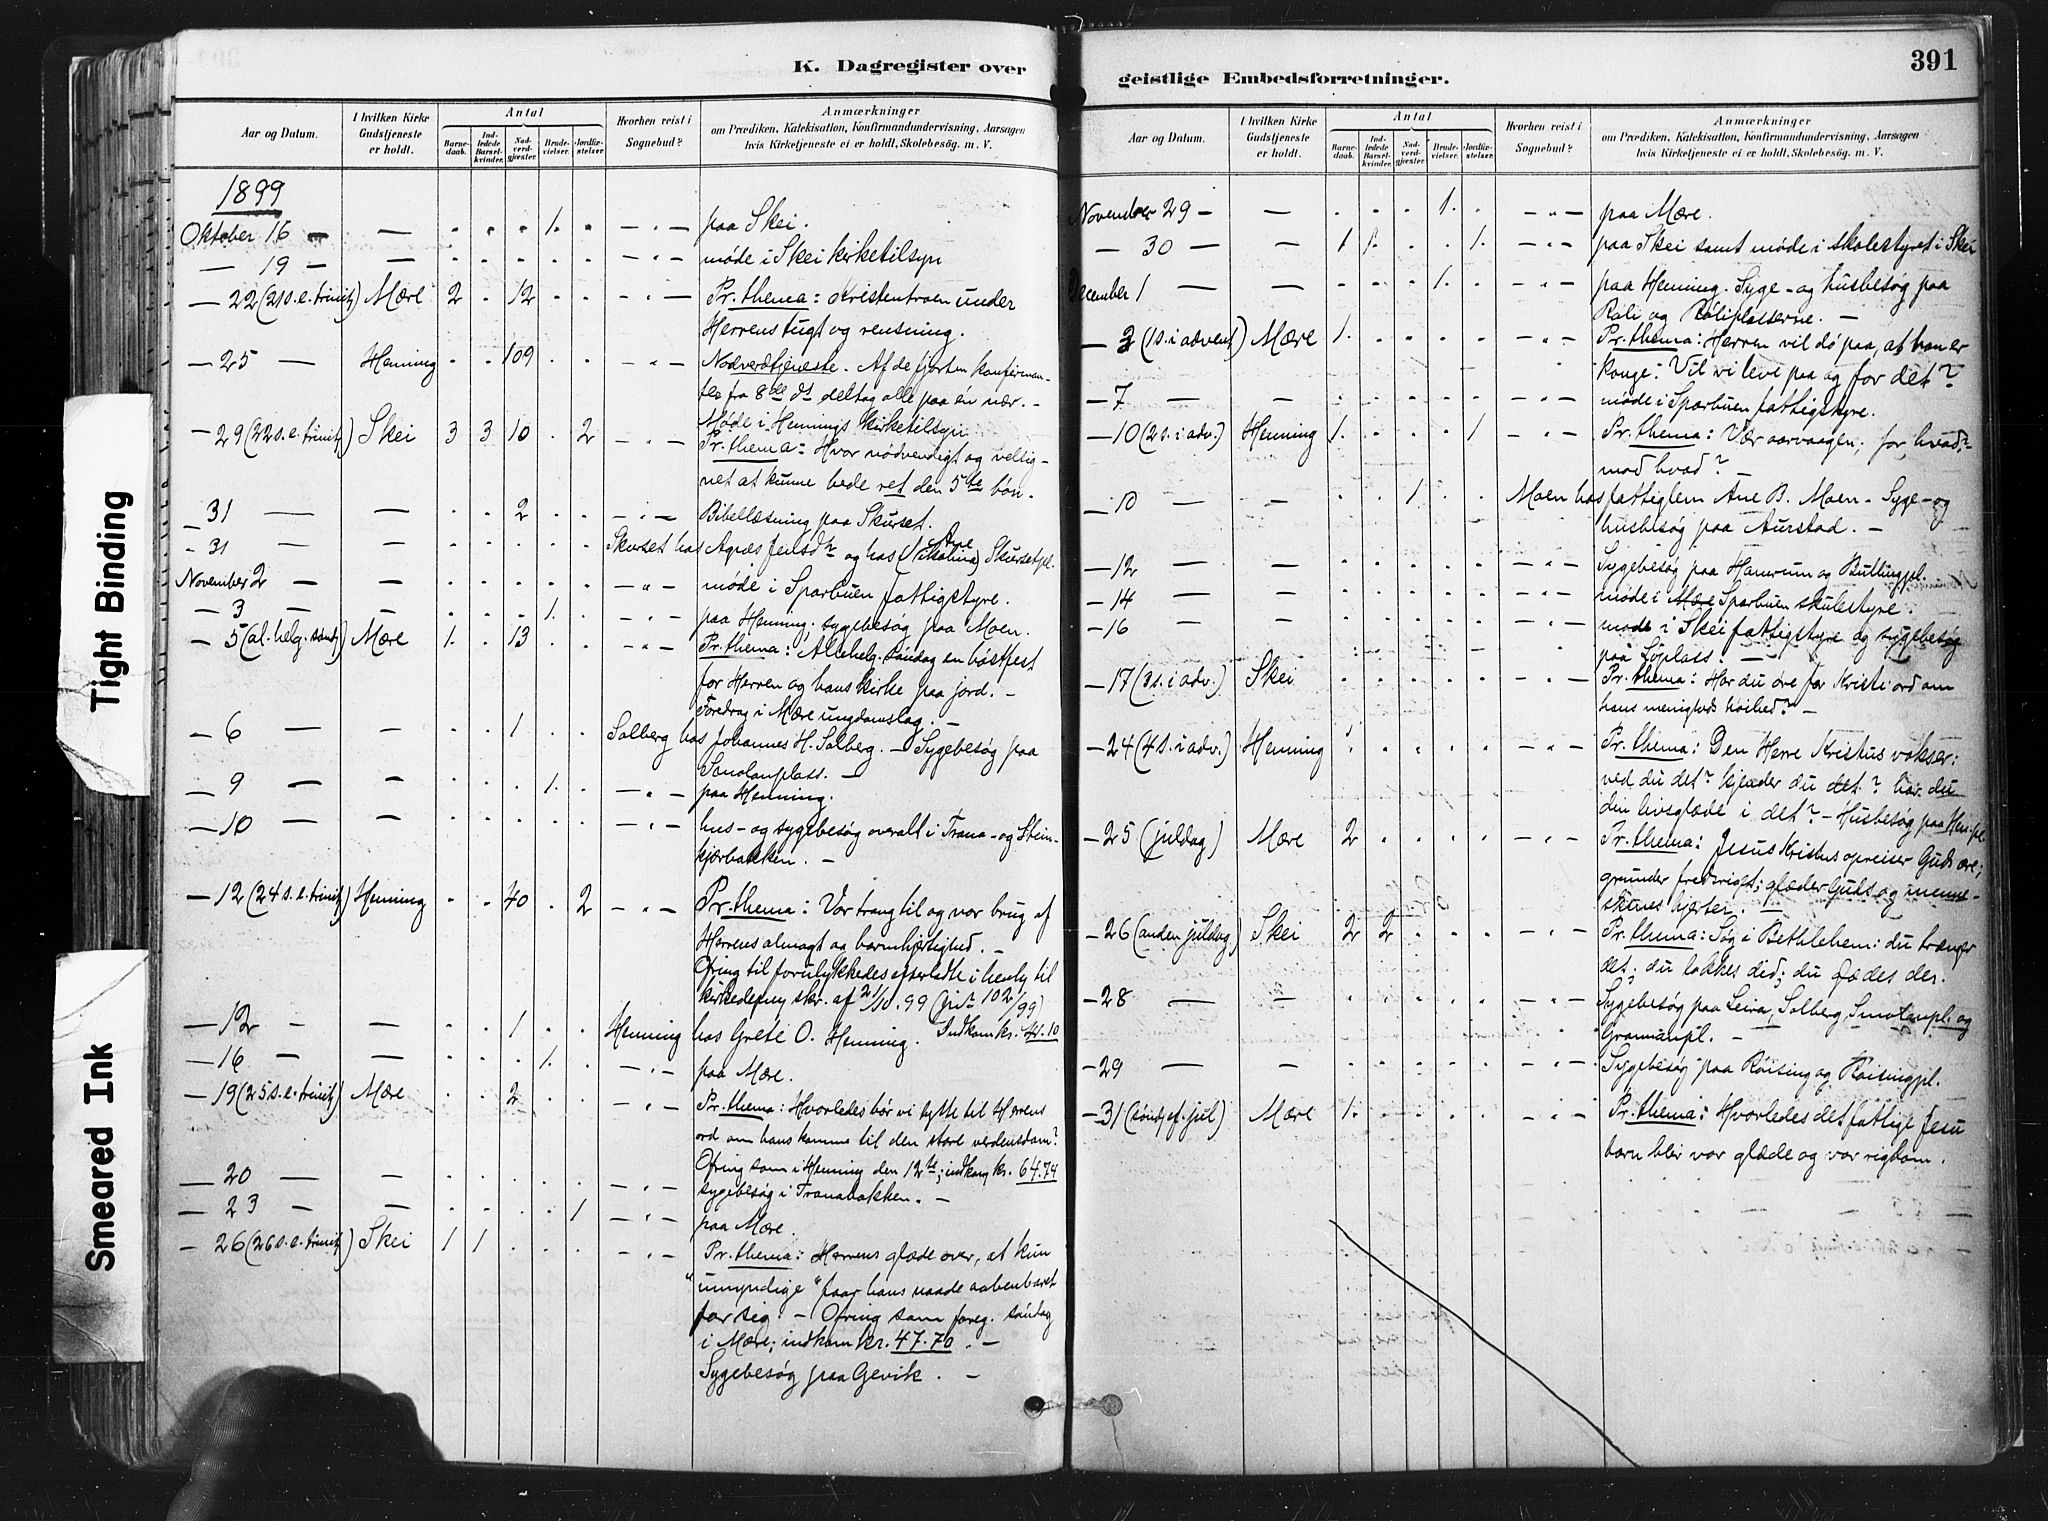 K. Dagregister over
geistlige Embedsforretninger.
391
Aar og Datum.
I hvilken Kirke Gudstjeneste er holdt.
Antal
Barnedaab.
Indledede Barselkvinder.
Nadverdgjester.
Brudevielser.
Jordfæstelser.
Hvorhen reist i Sognebud?
Anmærkninger
om Prædiken, Katekisation, Konfirmandundervisning, Aarsagen
hvis Kirketjeneste ei er holdt, Skolebesøg. m. V.
1899
Oktober 16 — — . . . 1. . — " — paa Skei.
— 19 — — . . . . . — " — møde i Skei kirketilsyn
— 22 (21 s. e. trinit) Mære 2 . 12 . . — " — Pr. thema: Kristentroen under
Herrens tugt og rensning.
— 25 — Henning . . 109 . . — " — Nadverdtjeneste. Af de fjorten konfirman-
ter fra 8de ds deltog alle paa én nær. —
Møde i Hennings kirketilsyn
— 29 (22 s. e. trinit) Skei 3 3 10 . 2 — " — Pr. thema: Hvor nødvendigt og velsig-
net at kunne bede ret den 5te bøn.
— 31 — — . . 2 . . — " — Bibellæsning paa Skurset.
- 31 — — . . . . . Skurset hos Agnes Jensdr og hos Ane (Nikolina) Skursetpl.
November 2 — — . . . . . — " — møde i Sparbuen fattigstyre.
— 3 — — . . . 1. . — " — paa Henning; sygebesøg paa Moen.
— 5 (al. helg. sønd) Mære 1. . 13 . . — " — Pr. thema: Allehelg. søndag en høstfest
for Herren og hans kirke paa jord. —
Foredrag i Mære ungdomslag. —
— 6 — — . . 1 . . Solberg hos Johannes H. Solberg. — Sygebesøg paa
Smolanplass. —
— 9 — — . . . 1. . — " — paa Henning.
— 10 — — . . . . . — " — hus- og sygebesøg overalt i Trana- og Stein-
kjærbakken. —
— 12 (24 s. e. trinit) Henning . . 40 . 2 — " — Pr. thema: Vor trang til og vor brug af
Herrens almagt og barmhjertighed. —
Ofring til forulykkedes efterladte i henh. til
kirkedep. skr. af 21/10. 99 (jnr 102/99)
Indkom kr. 41.10
— 12 — — . . 1 . . Henning hos Grete O. Henning.
— 16 — — . . . 1. . — " — paa Mære.
— 19 (25 s. e. trinit) Mære . . 2 . . — " — Pr. thema: Hvorledes bør vi lytte til Herrens
ord om hans komme til den store verdensdom?
Ofring som i Henning den 12te; indkom kr. 64.74
— 20 — — . . . . . — " — sygebesøg i Tranabakken. —
— 23 — — . . . . 1 — " — paa Mære.
— 26 (26 s. e. trinit) Skei 1 1 . . . — " — Pr. thema: Herrens glæde over, at kun
"umyndige" faar hans naade aabenbaret
for sig. — Ofring som foreg. søndag
i Mære; indkom kr. 47.70. —
Sygebesøg paa Gevik. —
Aar og Datum.
I hvilken Kirke Gudstjeneste er holdt.
Antal
Barnedaab.
Indledede Barselkvinder.
Nadverdgjester.
Brudevielser.
Jordfæstelser.
Hvorhen reist i Sognebud?
Anmærkninger
om Prædiken, Katekisation, Konfirmandundervisning, Aarsagen
hvis Kirketjeneste ei er holdt, Skolebesøg. m. V.
November 29 — — . . . 1. . — " — paa Mære.
— 30 — — 1 1. . . 1. — " — paa Skei samt møde i skolestyret i Skei
December 1 — — . . . 1. . — " — paa Henning. Syge- og husbesøg paa
— 3 (1 s. i advent) Mære 1. . . . . — " — Pr. thema: Herren vil dø paa, at han er
konge: Vil vi leve paa og for det?
— 7 — — . . . . . — " — møde i Sparbuen fattigstyre.
— 10 (2 s. i adv.) Henning 1. . . . 1 — " — Pr. thema: Vær aarvaagen; for hvad?
mod hvad? —
— 10 — — . . 1 . . Moen hos fattiglem Ane B. Moen — Syge- og
husbesøg paa Aurstad. —
— 12 — — . . . . . — " — Sygebesøg paa Hamrum og Bullingpl.
— 14 — — . . . . . — " — møde i Mære Sparbuen skulestyre.
— 16 — — . . . . . — " — møde i Skei fattigstyre og sygebesøg
— 17 (3 s. i adv.) Skei . . . . . — " — Pr. thema: Har du øre for Kristi ord om
hans menigheds høihed? —
— 24 (4 s. i adv.) Henning 1. . . . . — " — Pr. thema: Den Herre Kristus vokser:
ved du det? kjender du det? har du
den livsglæde i det? — Husbesøg paa Hen. pl.
— 25 (juldag) Mære 2 . . . . — " — Pr. thema: Jesus Kristus opreiser Guds ære;
grunder fredsriget; glæder Guds og menne-
skenes hjerter. —
— 26 (anden juldag) Skei 2 2 . . . — " — Pr. thema: Søg i Bethlehem: du trænger
det; du lokkes did; du fødes der.
— 28 — — . . . . . — " — Sygebesøg paa Leira, Solberg, Smolanpl. og
Gramanpl. —
— 29 — — . . . . . — " — Sygebesøg paa Røising og Røisingpl.
— 31 (sønd. ef. jul) Mære 1. . . . . — " — Pr. thema: Hvorledes det fattige Jesu
barn blir vor glæde og vor rigdom.
Tight Binding
Smeared Ink